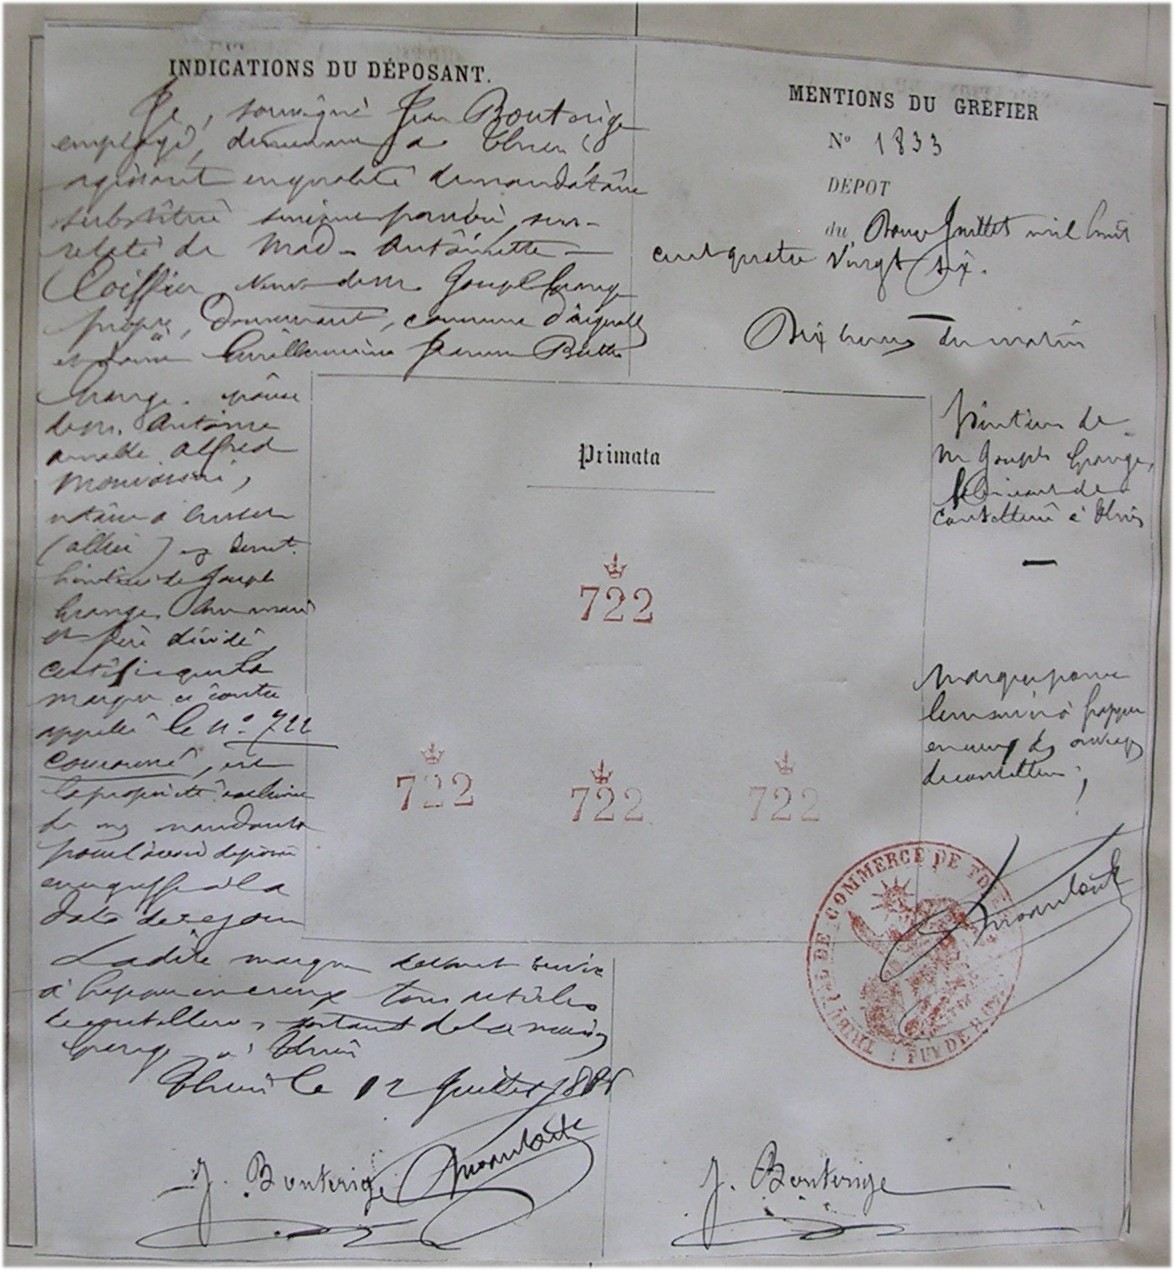 INDICATIONS DU DÉPOSANT.
Je, soussigné Jean Bouterige
employé, demeurant à Thiers
agissant en qualité de mandataire
substitué suivant pouvoir sus-
relaté de Mad. Antoinette
Coiffier veuve de M. Joseph Grange
propre, demeurant, commune d'aigueperse
et dame Guillemine Jeanne
Grange épouse
de M. Antoine
amable Alfred
notaire à
(allier)
héritiers de Joseph
Grange, leur mari
et père décédé,
certifie que la
marque ci contre
appelée le n° 722
couronné, est
la propriété exclusive
de mes mandants
pour l'avoir déposée
en ce greffe à la
date de ce jour
Ladite marque devant servir
à frapper en creux tous articles
de coutellerie, sortant de la maison
Grange à Thiers
Thiers le 12 Juillet 1886
J. Bouterige
MENTIONS DU GREFIER
N° 1833
DÉPOT
du Douze Juillet mil huit
cent quatre vingt six.
Dix heures du matin
Primata
722
722 722 722
héritiers de
M Joseph Grange,
fabricant de
coutellerie à Thiers
Marque pour
servir à frapper
en creux des ouvrages
de coutellerie;
TRIBUNAL DE COMMERCE DE THIERS
PUY DE DOME
J. Bouterige